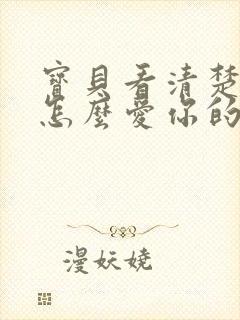 寶貝看清楚
怎麼愛你的
漫妖嬈